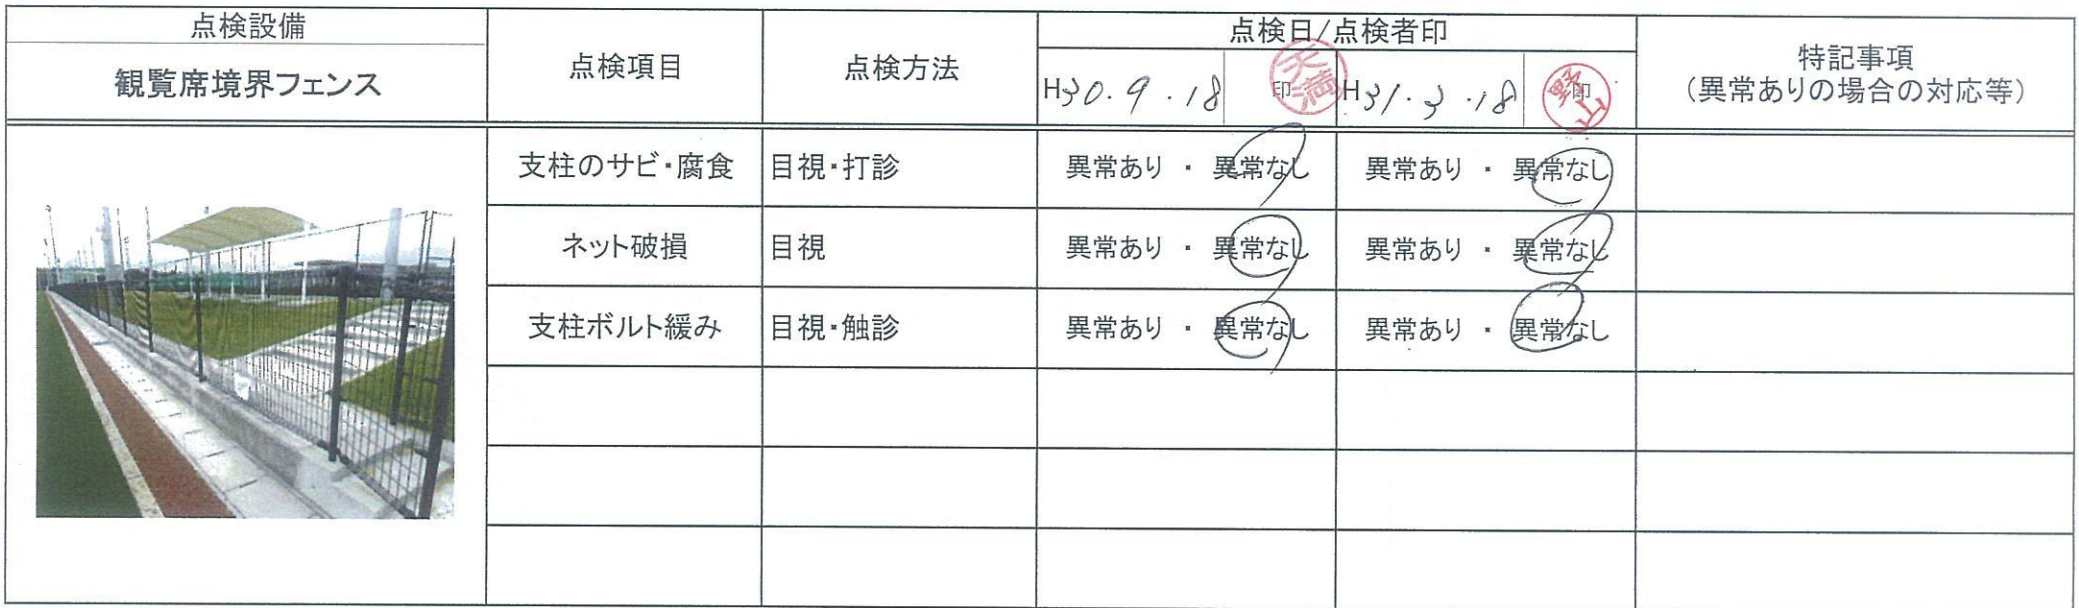 点検設備
点検項目
点検方法
点検日/点検者印
特記事項
(異常ありの場合の対応等)
観覧席境界フェンス
H30.9.18 印 天満 H31.3.18 印 野山
支柱のサビ・腐食 目視・打診 異常あり ・ 異常なし 異常あり ・ 異常なし
ネット破損 目視 異常あり ・ 異常なし 異常あり ・ 異常なし
支柱ボルト緩み 目視・触診 異常あり ・ 異常なし 異常あり ・ 異常なし